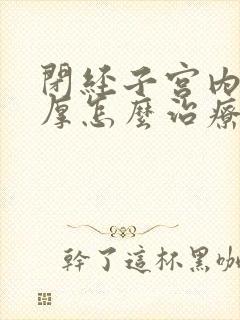 閉經子宮內
厚怎麼治療
幹了這杯黑咖